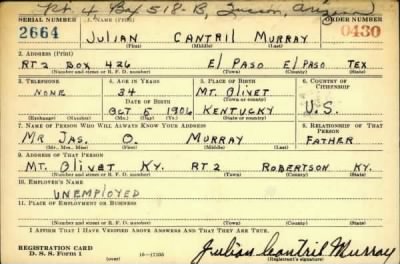 Rt. 4 Box 518-B, Tucson, Arizona
SERIAL NUMBER 1. NAME (Print) ORDER NUMBER
2664 JULIAN CANTRIL MURRAY 0430
(First) (Middle) (Last)
2. ADDRESS (Print)
RT 2 BOX 426 El PASO El PASO TEX
(Number and street or R. F. D. number) (Town) (County) (State)
3. TELEPHONE 4. AGE IN YEARS 5. PLACE OF BIRTH 6. COUNTRY OF CITIZENSHIP
NONE 34 MT. OLIVET
DATE OF BIRTH (Town or county)
OCT 5 1906 KENTUCKY U.S.
(Exchange) (Number) (Mo.) (Day) (Yr.) (State or country)
7. NAME OF PERSON WHO WILL ALWAYS KNOW YOUR ADDRESS 8. RELATIONSHIP OF THAT PERSON
MR JAS. O. MURRAY FATHER
(Mr., Mrs., Miss) (First) (Middle) (Last)
9. ADDRESS OF THAT PERSON
MT. OLIVET KY. RT 2 ROBERTSON KY.
(Number and street or R. F. D. number) (Town) (County) (State)
10. EMPLOYER'S NAME
UNEMPLOYED
11. PLACE OF EMPLOYMENT OR BUSINESS
(Number and street or R. F. D. number) (Town) (County) (State)
I AFFIRM THAT I HAVE VERIFIED ABOVE ANSWERS AND THAT THEY ARE TRUE.
REGISTRATION CARD
D. S. S. Form 1 16-17105 Julian Cantril Murray